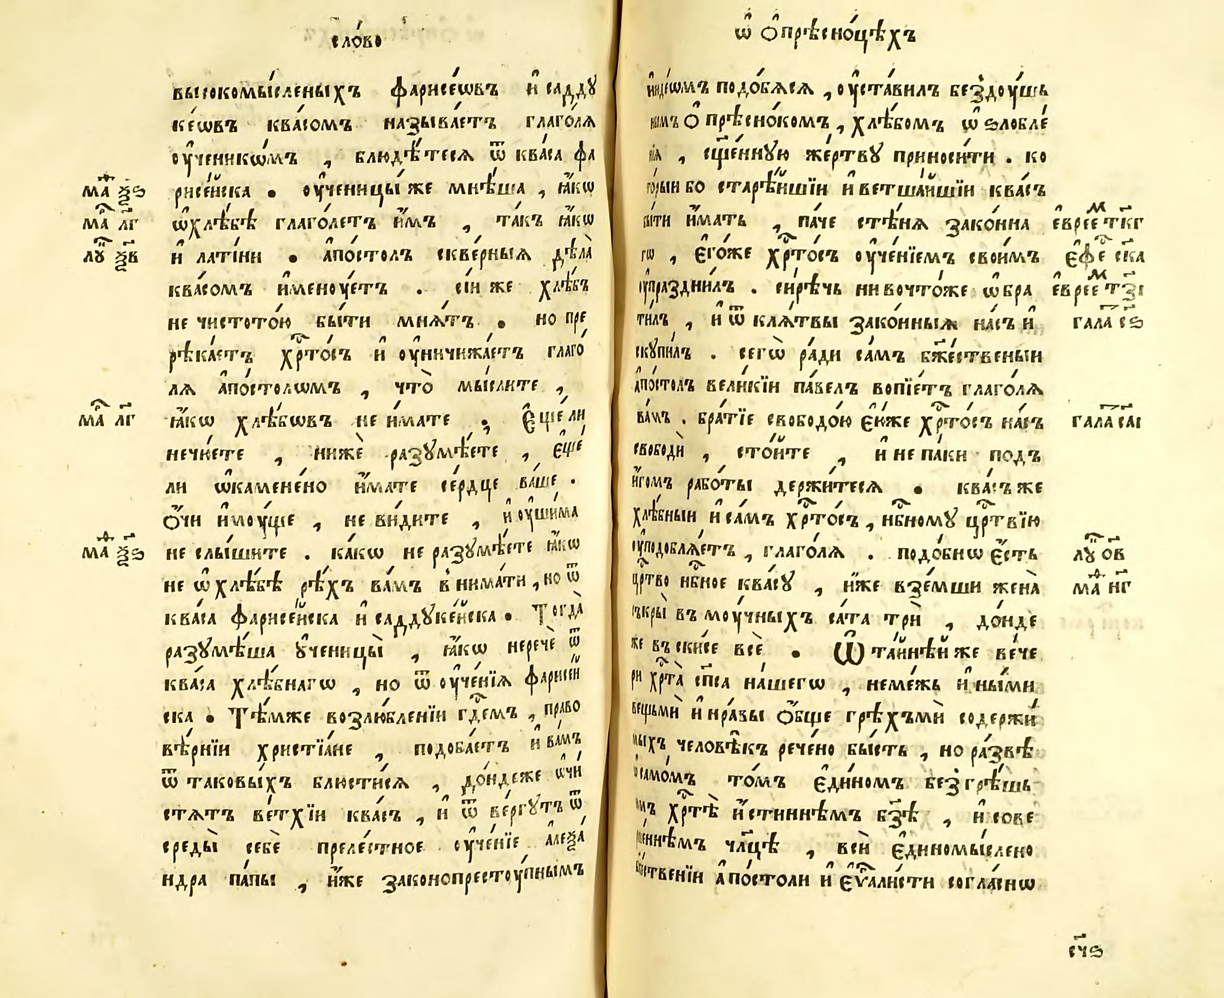 сло́во
высокомы́сленыхъ фарисе́ѡвъ и҆ садду
ке́ѡвъ ква́сомъ называ́етъ глаго́лѧ
ᲂу҆ченикѡ́мъ , блюди́тесѧ ѿ ква́са фа
рисе́йска . ᲂу҆ченицы́ же мнѣ́ша , ꙗ҆́кѡ
ѡ҆ хлѣ́бѣ глаго́летъ и҆̀мъ , та́къ ꙗ҆́кѡ
и҆ лати́ни . а҆по́столъ скве́рныѧ дѣла̀
ква́сомъ и҆мену́етъ . сі́и же хлѣ́бъ
не чистото́ю бы́ти мнѧ́тъ . но пре
рѣка́етъ хрⷭ҇то́съ и҆ ᲂу҆ничижа́етъ глаго́
лѧ а҆по́столѡмъ , что̀ мы́слите ,
ꙗ҆́кѡ хлѣ́бѡвъ не и҆́мате , Є҆ще́ ли
не чю́ете , нижѐ разꙋмѣ́ете , є҆ще́
ли ѡ҆камене́но и҆́мате се́рдце ва́ше .
Ѻ҆́чи и҆мᲂу́ще , не ви́дите , и҆ ᲂу҆ши́ма
не слы́шите . ка́кѡ не разꙋмѣ́ете ꙗ҆́кѡ
не ѡ҆ хлѣ́бѣ рѣ́хъ ва́мъ внима́ти , но ѿ
ква́са фарисе́йска и҆ саддꙋке́йска . Тогда̀
разꙋмѣ́ша ᲂу҆ченицы̀ , ꙗ҆́кѡ не речѐ ѿ
ква́са хлѣ́бнагѡ , но ѿ ᲂу҆че́нїѧ фарисе́й
ска . Тѣ́мже возлю́бленїи гдⷭ҇емъ , право
вѣ́рнїи христїа́не , подоба́етъ и҆ ва́мъ
ѿ таковы́хъ блюсти́сѧ , до́ндеже ѡ҆чи́
стѧтъ ве́тхїи ква́съ , и҆ ѿ ве́ргутъ ѿ
среды̀ себѐ преле́стное ᲂу҆че́нїе але́ѯа
ндра па́пы , и҆́же законопрестᲂу́пнымъ
ма́ѳ ѯ҃ѕ
ма́ѳ лг҃
лꙋ ѯ҃в
ма́ѳ лг҃
ма́ѳ ѯ҃ѕ
ѡ҆ Ѻ҆прѣсно́цѣхъ
и҆ꙋде́ѡмъ подо́бѧсѧ , ᲂу҆ста́вилъ бездᲂу́шь
нымъ Ѻ҆прѣсно́комъ , хлѣ́бомъ ѡ҆ѕлобле́
нїѧ , сщ҃е́нную же́ртвꙋ приноси́ти . ко
то́рыи бо старѣ́йшїи и҆ ветша́йшїи ква́съ
бы́ти и҆́мать , па́че стѣ́нѧ зако́нна
гѡ , є҆го́же хрⷭ҇то́съ ᲂу҆че́нїемъ свои́мъ
ᲂу҆праздни́лъ . си́рѣчь ни во что́же ѡ҆бра
ти́лъ , и҆ ѿ клѧ́твы зако́нныѧ на́съ и҆
скупи́лъ . сегѡ̀ ра́ди са́мъ бж҃е́ственыи
а҆по́столъ вели́кїи па́велъ вопїе́тъ глаго́лѧ
ва́мъ . бра́тїе свободо́ю є҆́юже хрⷭ҇то́съ на́съ
свободѝ , сто́йте , и҆ не па́ки подъ
и҆́гомъ рабо́ты держи́тесѧ . ква́съ же
хлѣ́бныи и҆ са́мъ хрⷭ҇то́съ , нб҇номꙋ црⷭ҇твїю
ᲂу҆подоблѧ́етъ , глаго́лѧ . подо́бнѡ є҆́сть
црⷭ҇тво нбⷭ҇ное ква́сꙋ , и҆́же взе́мши жена̀
съкры̀ въ мᲂу́чныхъ са́та трѝ , до́нде
же въски́се всѐ . Ѡ҆ та́йнѣй же ве́че
ри хрⷭ҇та̀ сп҃са на́шегѡ , не ме́жь и҆ны́ми
вещьмѝ и҆ нра́вы ѻ҆́бще грѣхъмѝ содержи́
мыхъ человѣ́къ рече́но бы́сть , но ра́звѣ
ѡ҆ само́мъ то́мъ є҆ди́номъ безгрѣ́шь
нѣмъ хрⷭ҇тѣ̀ и҆́стиннѣмъ бз҃ѣ , и҆ сове
ше́ннѣмъ чл҃цѣ , всѝ є҆диномы́слено
бже́ственїи а҆по́столи и҆ є҆ѵⷢ҇али́сти согла́снѡ
евре́ем тк҃г
є҆фе́ ск҃а
евре́ем тз҃і
гала́ с҃ѕ
гала́ са҃і
лꙋ ѻ҃в
ма́ѳ н҃г
сч҃ѕ